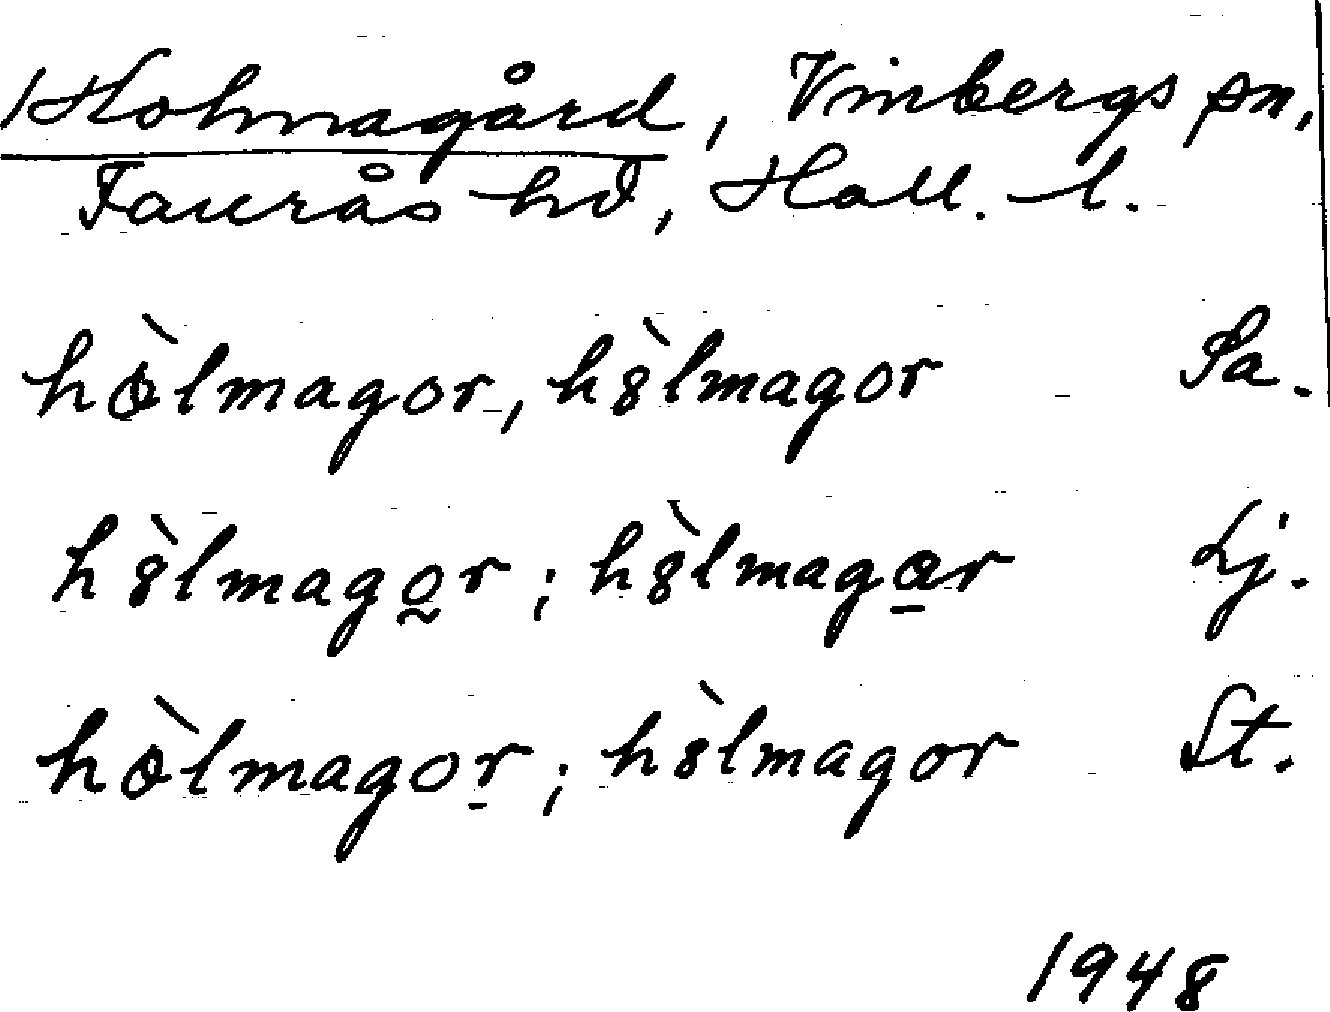 Holmagård, Vinbergs sn,
Faurås hd, Hall. l.
hòlmagor, hòlmagor Sa.
hòlmagor; hòlmagar Lj.
hòlmagor; hòlmagor St.
1948